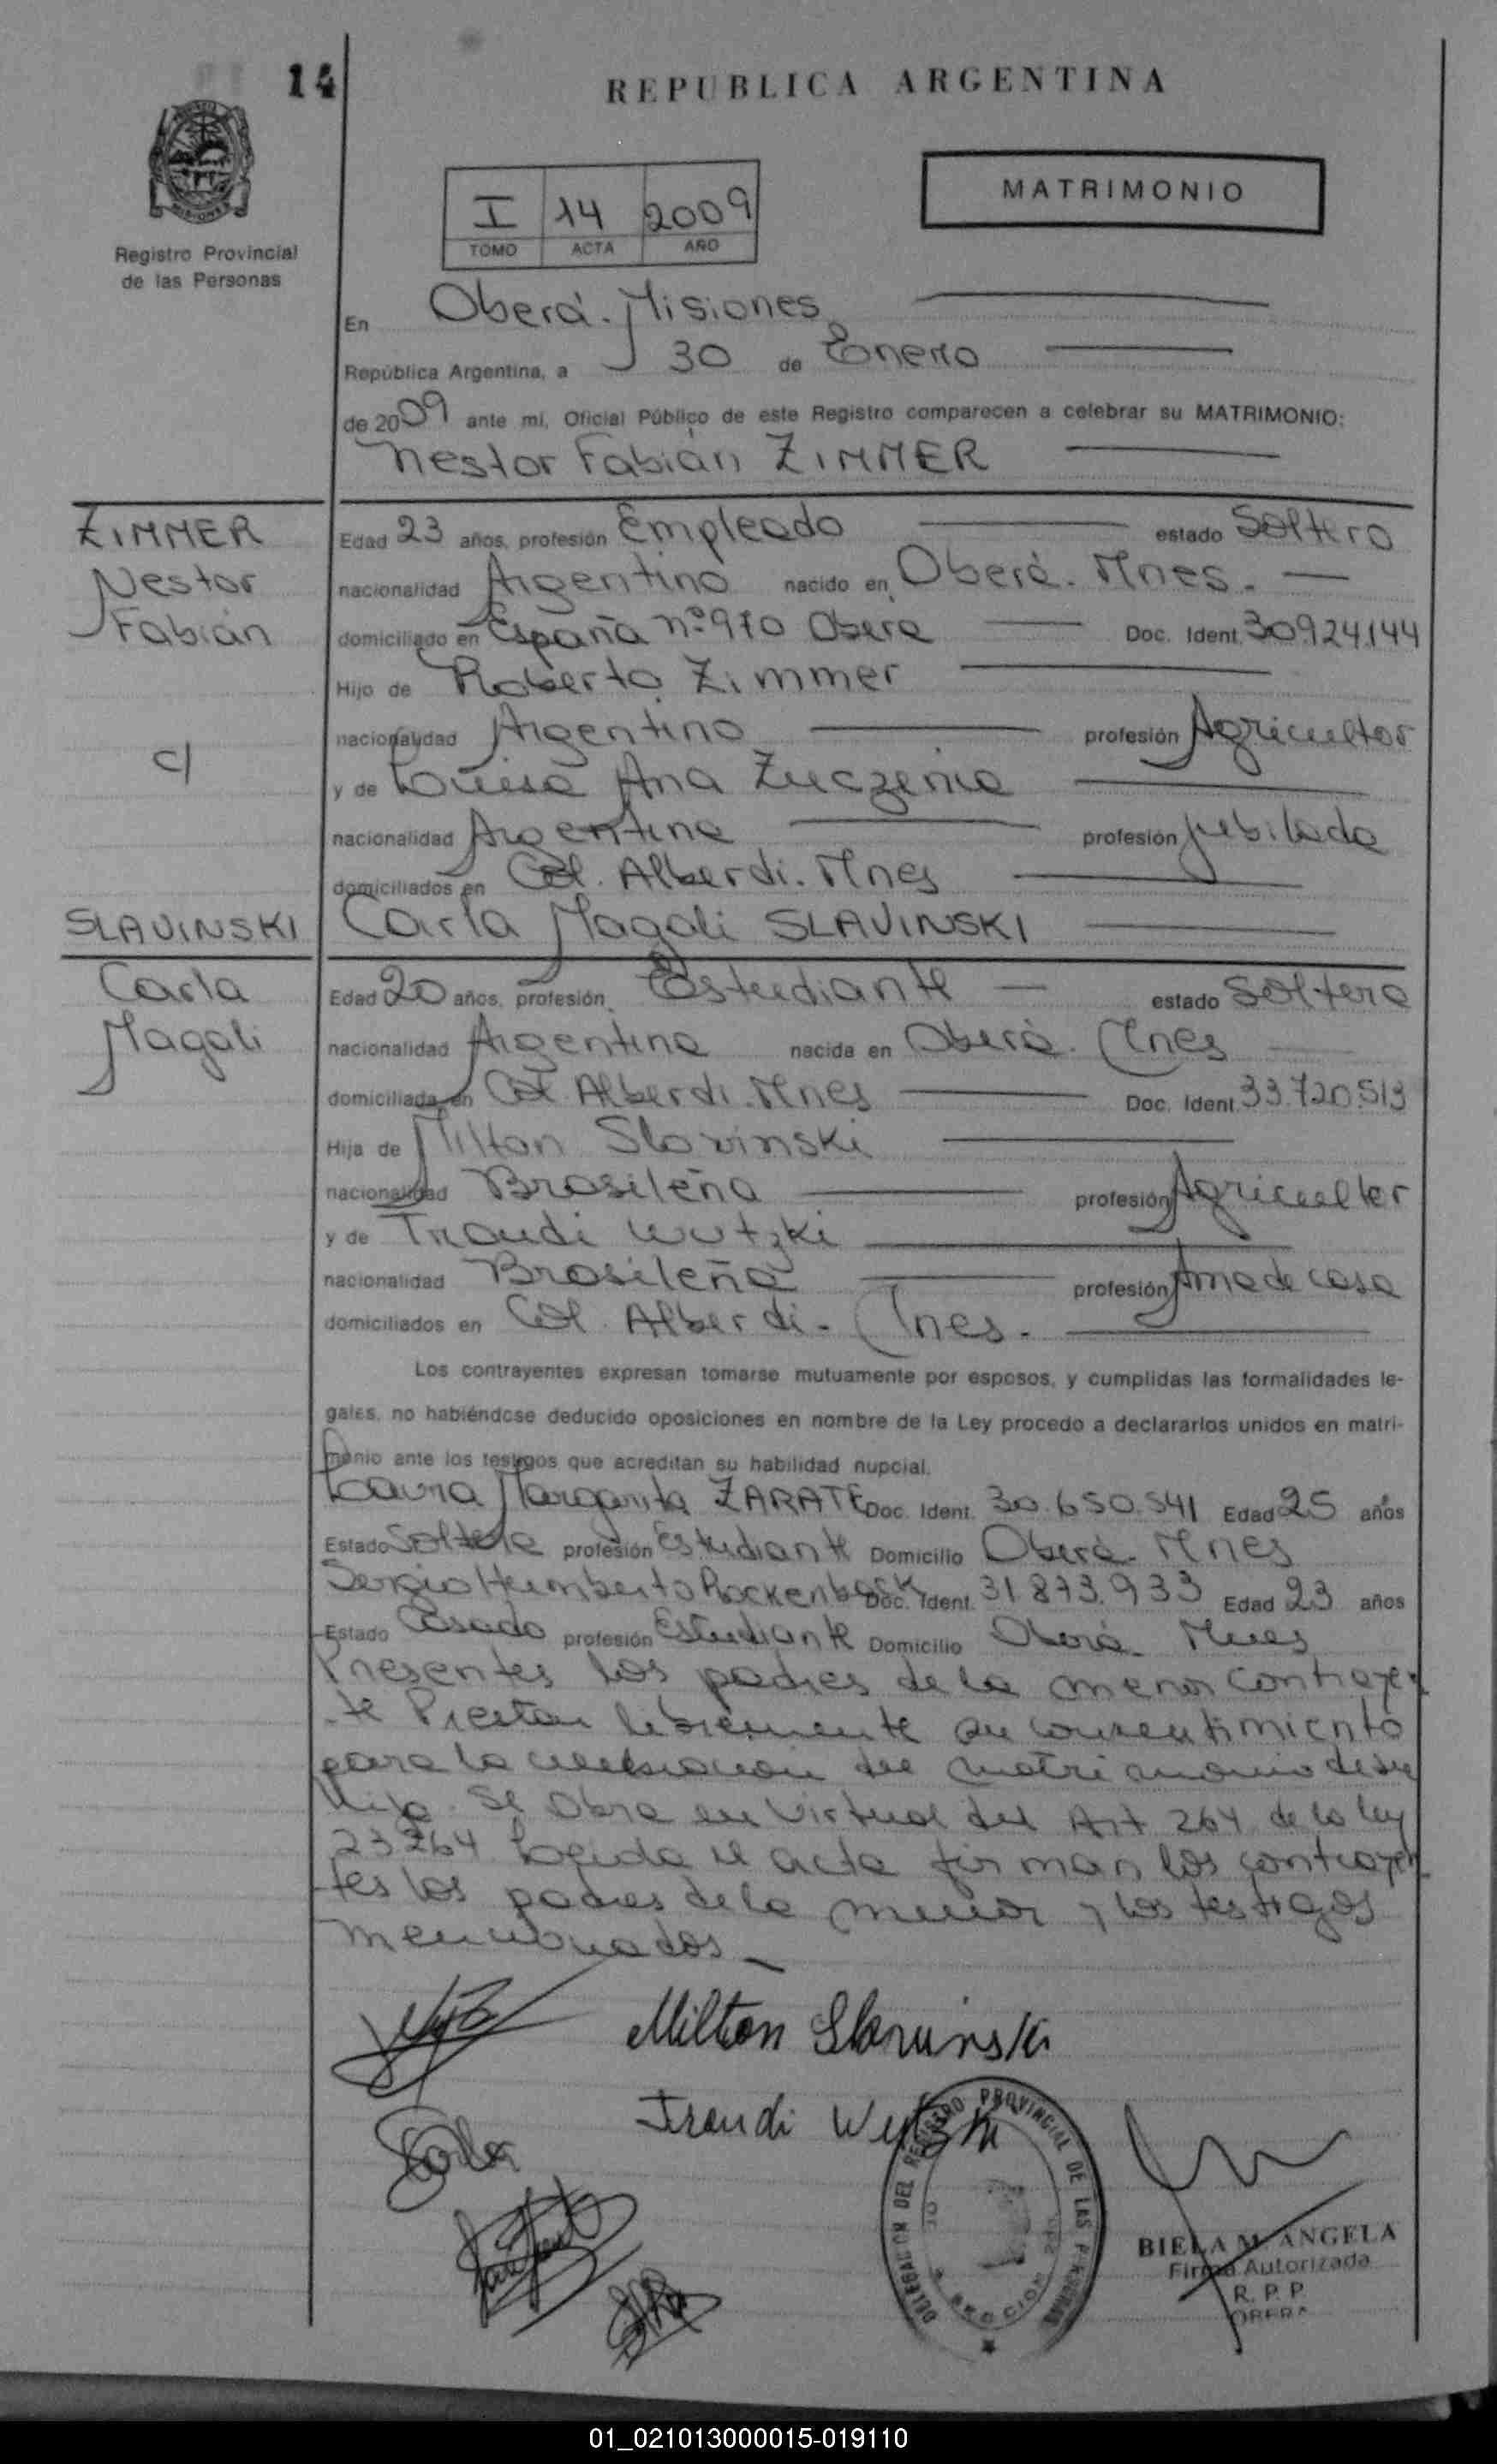 14
REPUBLICA ARGENTINA
MATRIMONIO
I 14 2009
TOMO ACTA AÑO
Registro Provincial
de las Personas
En Oberá. Misiones
República Argentina, a 30 de Enero
de 2009 ante mí, Oficial Público de este Registro comparecen a celebrar su MATRIMONIO:
Nestor Fabián ZIMMER
ZIMMER
Nestor
Fabián
c/
SLAVINSKI
Carla
Magali
Edad 23 años, profesión Empleado estado Soltero
nacionalidad Argentino nacido en Oberá. Mnes.
domiciliado en España nº 910 Oberá Doc. Ident. 30.924.144
Hijo de Roberto Zimmer
nacionalidad Argentino profesión Agricultor
y de Luisa Ana
nacionalidad Argentina profesión Jubilada
domiciliados en Col. Alberdi. Mnes
Carla Magali SLAVINSKI
Edad 20 años, profesión Estudiante estado Soltera
nacionalidad Argentina nacida en Oberá. Mnes
domiciliada en Col. Alberdi. Mnes Doc. Ident. 33.720.513
Hija de Milton Slavinski
nacionalidad Brasileña profesión Agricultor
y de Traudi Wutzki
nacionalidad Brasileña profesión Ama de casa
domiciliados en Col. Alberdi - Mnes.
Los contrayentes expresan tomarse mutuamente por esposos, y cumplidas las formalidades le-
gales, no habiéndose deducido oposiciones en nombre de la Ley procedo a declararlos unidos en matri-
monio ante los testigos que acreditan su habilidad nupcial.
Laura Margarita ZARATE Doc. Ident. 30.650.541 Edad 25 años
Estado Soltera profesión Estudiante Domicilio Oberá Mnes
Sergio Humberto Rockenback Doc. Ident. 31.873.933 Edad 23 años
Estado Casado profesión Estudiante Domicilio Oberá Mnes
Presentes los padres de la menor contrayen
te Prestan libremente su consentimiento
para la celebracion del matrimonio de su
hija. Se Obra en Virtud del Art 264 de la ley
23264 Leida el acta firman los contrayen
tes los padres de la menor y los testigos
mencionados
Milton Slavinski
Traudi Wutzki
DELEGACION DEL REGISTRO PROVINCIAL DE LAS PERSONAS
BIELA M. ANGELA
Firma Autorizada
R. P. P.
OBERA
01_021013000015-019110